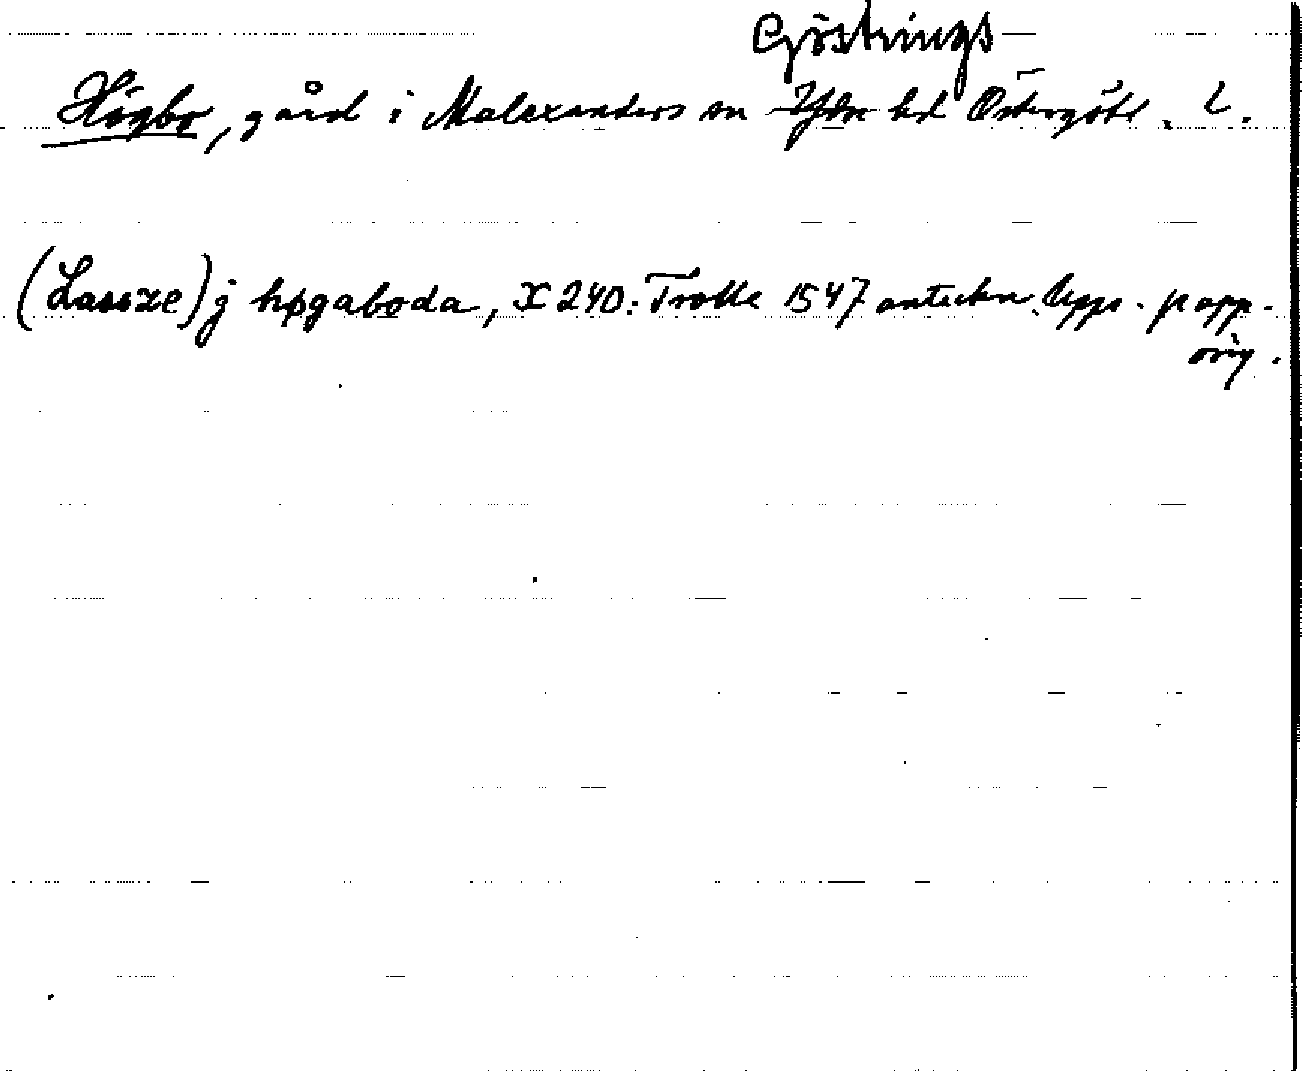 Göstrings
Högbo, gård i Malexanders sn Ydre hd Östergötl. l.
(Lassze) j høgaboda, X 240: Trolle 1547 anteckn. Upps. papp.
orig.